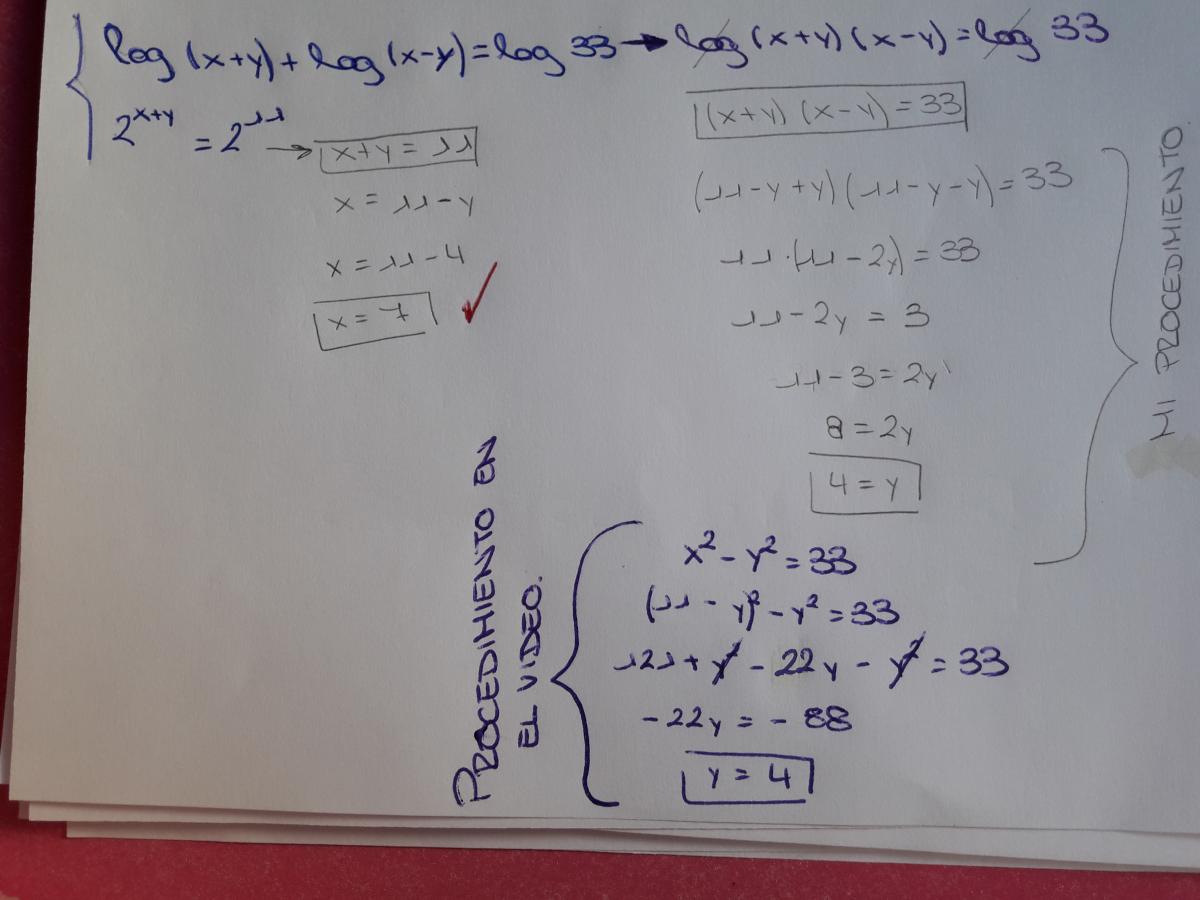 log (x+y) + log (x-y) = log 33 → log (x+y) (x-y) = log 33
2^{x+y} = 2^{11} → x+y = 11
x = 11-y
x = 11-4
x = 7 ✓
(x+y) (x-y) = 33
(11-y+y) (11-y-y) = 33
11·(11-2y) = 33
11-2y = 3
11-3 = 2y
8 = 2y
4 = y
MI PROCEDIMIENTO
PROCEDIMIENTO EN
EL VIDEO.
x² - y² = 33
(11 - y)² - y² = 33
121 + y² - 22y - y² = 33
-22y = - 88
y = 4